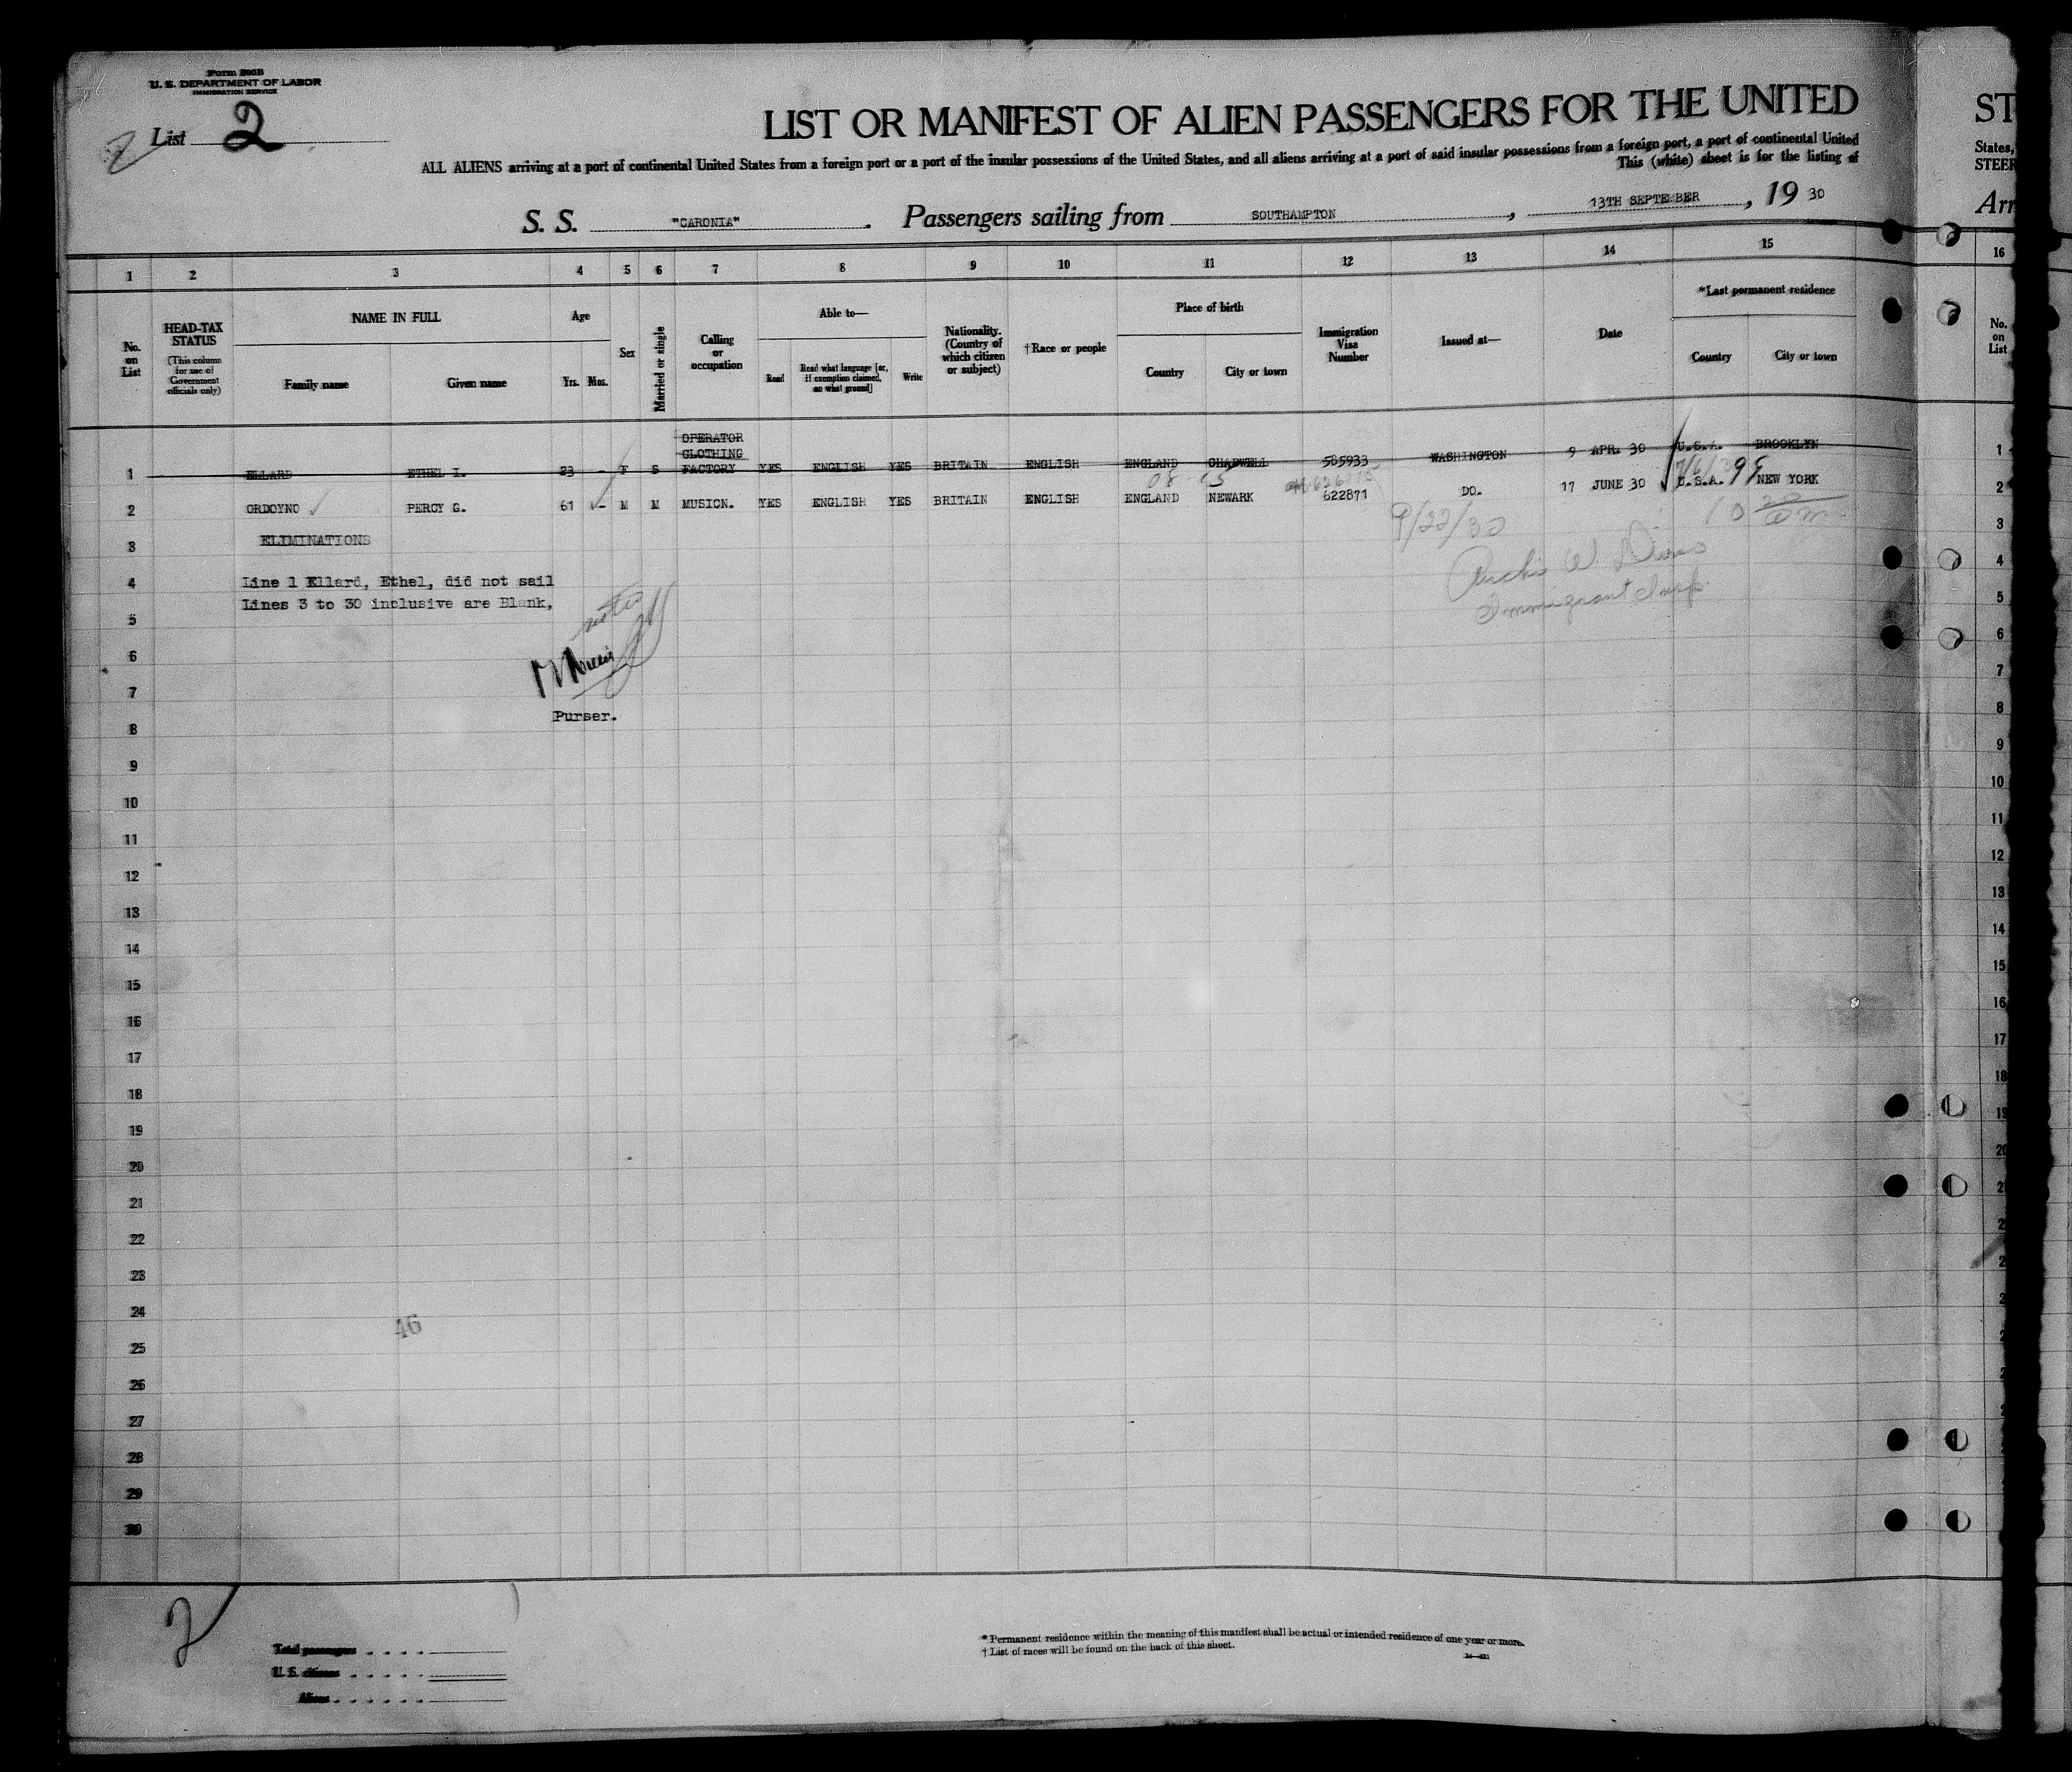 Form 500B
U. S. DEPARTMENT OF LABOR
IMMIGRATION SERVICE
List 2
LIST OR MANIFEST OF ALIEN PASSENGERS FOR THE UNITED
ALL ALIENS arriving at a port of continental United States from a foreign port or a port of the insular possessions of the United States, and all aliens arriving at a port of said insular possessions from a foreign port, a port of continental United
This (white) sheet is for the listing of
S. S. "CARONIA". Passengers sailing from SOUTHAMPTON, 13TH SEPTEMBER, 19 30
ST
States,
STEER
Arr
1 2 3 4 5 6 7 8 9 10 11 12 13 14 15 16
No. on List
HEAD-TAX STATUS
(This column for use of Government officials only)
NAME IN FULL
Family name Given name
Age
Yrs. Mos.
Sex
Married or single
Calling or occupation
Able to—
Read
Read what language [or, if exemption claimed, on what ground]
Write
Nationality. (Country of which citizen or subject)
†Race or people
Place of birth
Country City or town
Immigration Visa Number
Issued at—
Date
*Last permanent residence
Country City or town
No. on List
1 ELLARD ETHEL I. 23 - F S OPERATOR CLOTHING FACTORY YES ENGLISH YES BRITAIN ENGLISH ENGLAND CHADWELL 585933 WASHINGTON 9 APR. 30 U.S.A. BROOKLYN 1
2 ORDOYNO PERCY G. 61 - M M MUSICN. YES ENGLISH YES BRITAIN ENGLISH ENGLAND NEWARK 622871 DO. 17 JUNE 30 U.S.A. NEW YORK 2
9/22/30
3 ELIMINATIONS 3
4 Line 1 Ellard, Ethel, did not sail 4
Lines 3 to 30 inclusive are Blank,
Immigrant Insp.
5 5
6 6
7 7
Purser.
8 8
9 9
10 10
11 11
12 12
13 13
14 14
15 15
16 16
17 17
18 18
19 19
20 20
21 2
22 2
23 2
24 2
46
25 2
26
27
28
29
30
2
Total passengers
U. S. citizens
Aliens
* Permanent residence within the meaning of this manifest shall be actual or intended residence of one year or more.
† List of races will be found on the back of this sheet.